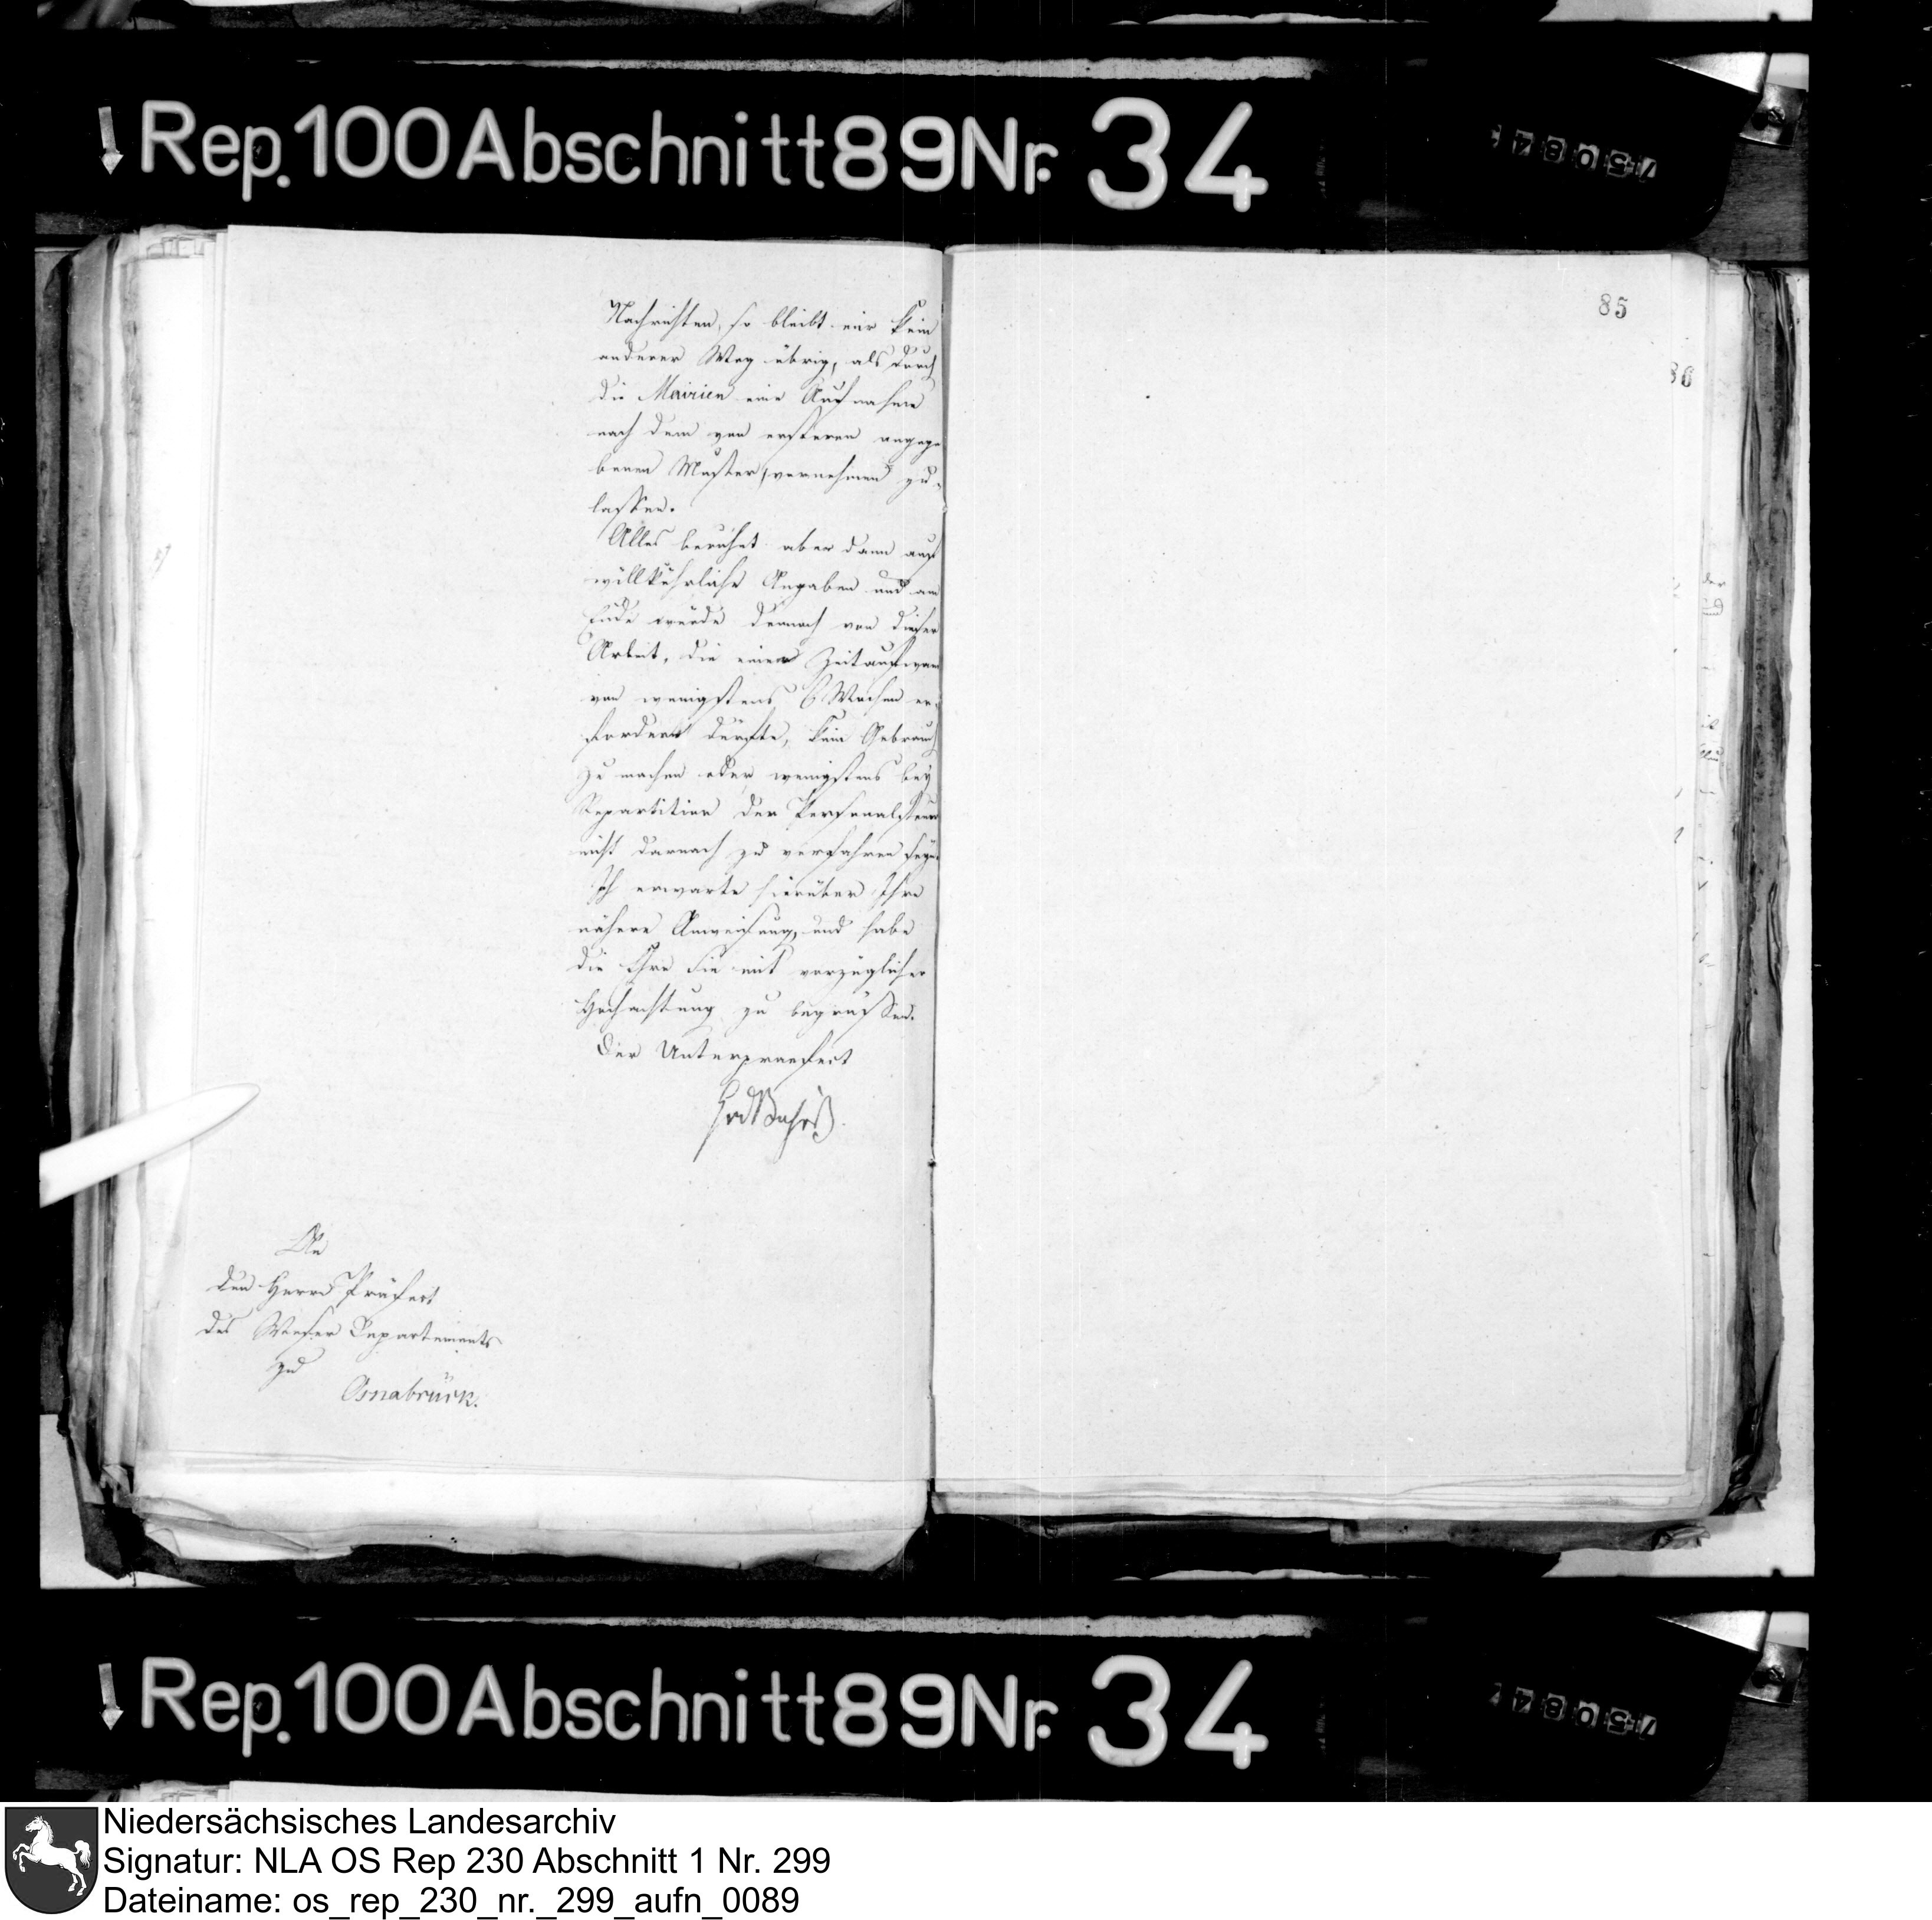 Rep. 100 Abschnitt 89 Nr. 34
85
86
Nachrichten, so bleibt nur kein
anderer Weg übrig, als durch
die Mairien eine Aufnahme
nach dem von ersteren angege-
benen Muster vornehmen zu
lassen.
Alles beruhet aber dann auf
willkührliche Angaben und am
Ende würde dennoch von dieser
Arbeit, die einen Zeitaufwand
von wenigstens 6 Wochen er-
fordern dürfte, kein Gebrauch
zu machen oder wenigstens bey
Repartition der Personalsteuer
nicht darnach zu verfahren seyn.
Ich erwarte hierüber Ihre
nähere Anweisung, und habe
die Ehre Sie mit vorzüglicher
Hochachtung zu begrüssen.
Der Unterpraefect
An
den Herrn Präfect
des Weser Departements
zu
Osnabrück.
Rep. 100 Abschnitt 89 Nr. 34
Niedersächsisches Landesarchiv
Signatur: NLA OS Rep 230 Abschnitt 1 Nr. 299
Dateiname: os_rep_230_nr._299_aufn_0089